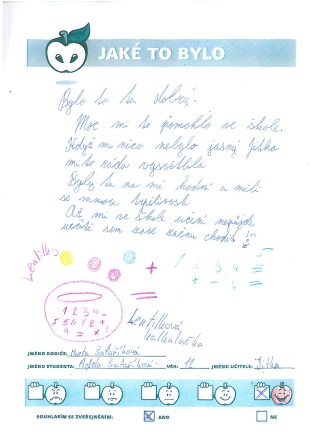 JAKÉ TO BYLO
Bylo to tu dobrý.
Moc mi to pomohlo ve škole.
Když mi něco nebylo jasný Jitka
mi to ráda vysvětlila.
Byly tu na mě hodní a milí
se mnou trpěliví.
Až mi ve škole učení nepůjde
určitě sem zase začnu chodit!
Lentilky
+ 1 2 3 4 =
1 2 3 4
5 6 7 8 9
Lentilková
kalkulačka
JMÉNO RODIČE: Marta
JMÉNO STUDENTA: Adéla VĚK: 12 JMÉNO UČITELE: Jitka
SOUHLASÍM SE ZVEŘEJNĚNÍM: ANO NE